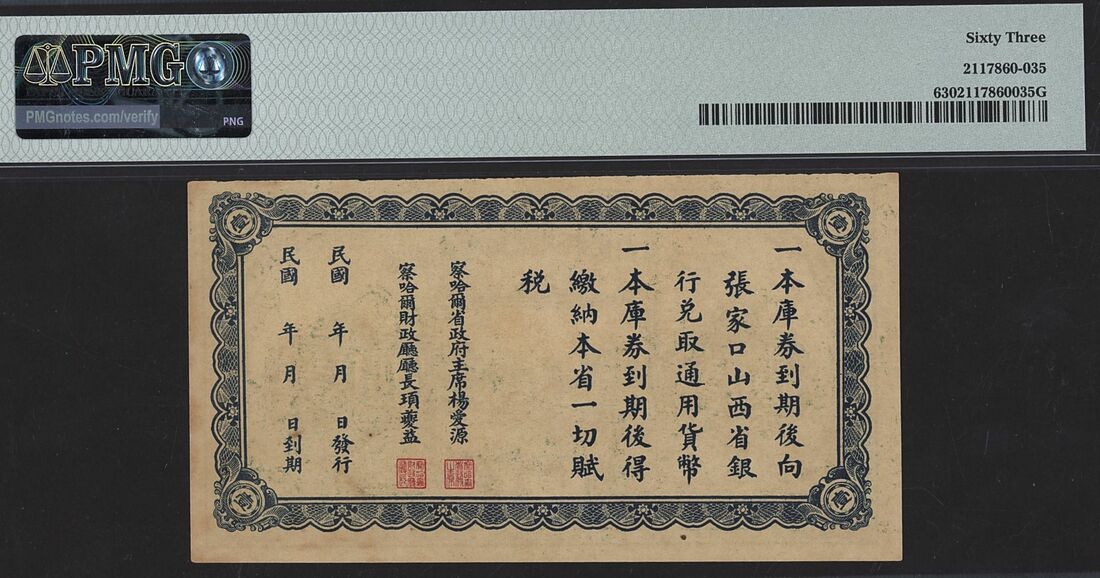 PMG
PMGnotes.com/verify
PNG
Sixty Three
2117860-035
6302117860035G
一本庫券到期後向
張家口山西省銀
行兌取通用貨幣
一本庫券到期後得
繳納本省一切賦
税
察哈爾省政府主席楊愛源
察哈爾財政廳廳長項夔益
民國 年 月 日發行
民國 年 月 日到期
壹
壹
壹
壹